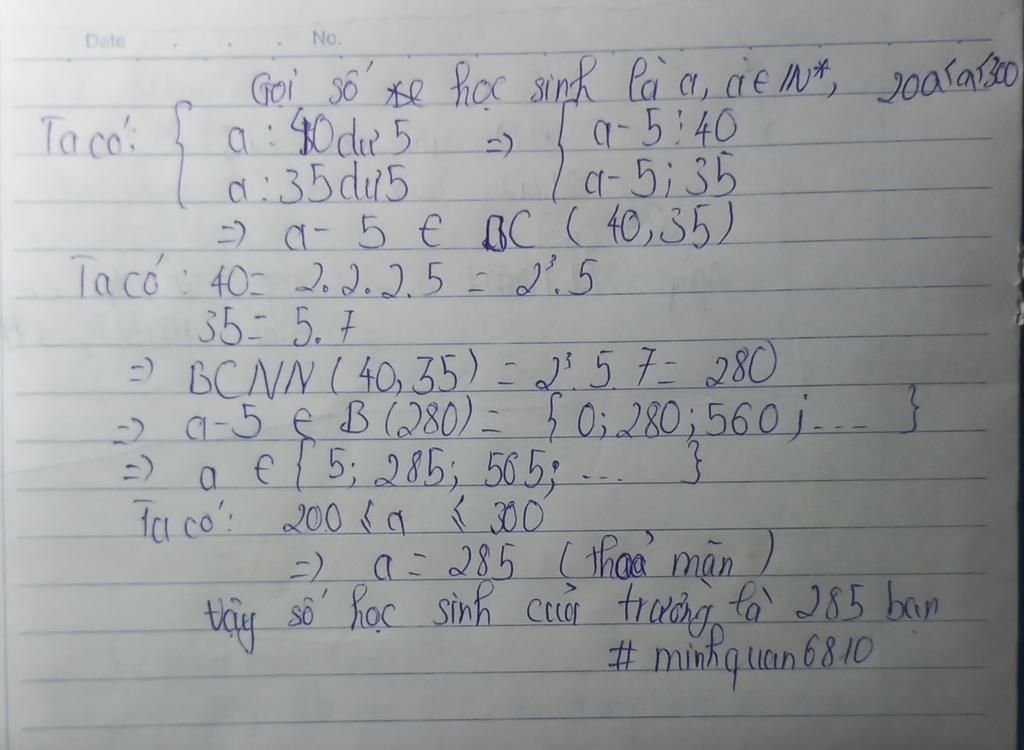 Date No.
Gọi số học sinh là a, a ∈ N*, 200≤a≤300
Ta có: { a : 40 dư 5 => { a - 5 ⋮ 40
a : 35 dư 5 a - 5 ⋮ 35
=> a - 5 ∈ BC ( 40, 35)
Ta có : 40 = 2. 2. 2. 5 = 2³. 5
35 = 5. 7
=> BCNN ( 40, 35 ) = 2³. 5. 7 = 280
=> a-5 ∈ B (280) = { 0; 280; 560; ... }
=> a ∈ { 5; 285; 565; ... }
Ta có: 200 ≤ a ≤ 300
=> a = 285 ( thoả mãn )
Vậy số học sinh của trường là 285 bạn
# minhquan6810